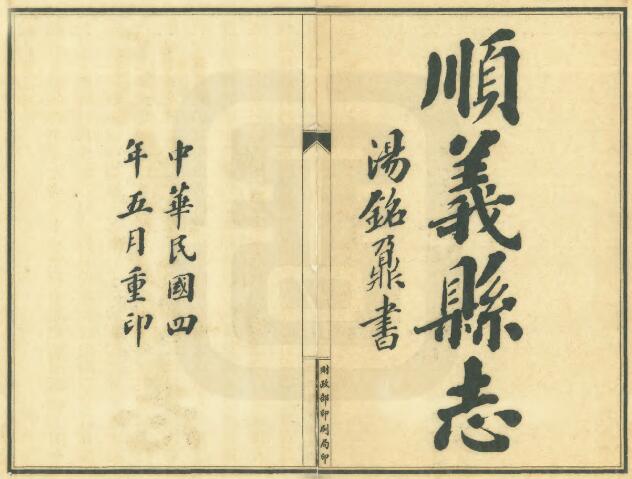 順義縣志
湯銘鼐書
財政部印刷局印
中華民國四
年五月重印